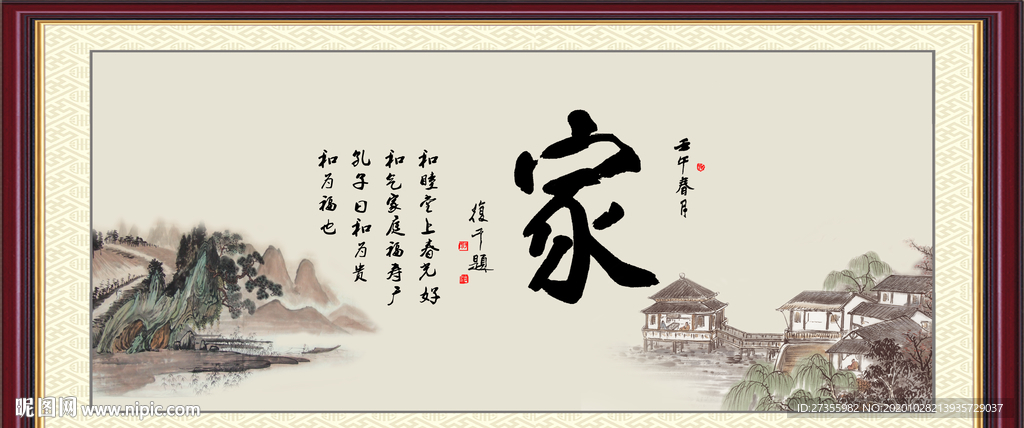 壬午春月
家
復千題
和睦堂上春光好
和气家庭福寿广
孔子曰和为贵
和为福也
昵图网 www.nipic.com
ID:27355982 NO:20201028213935729037